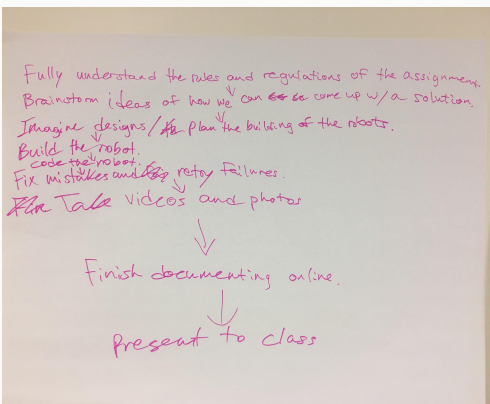 Fully understand the rules and regulations of the assignment.
Brainstorm ideas of how we can come up w/a solution.
Imagine designs/ Plan the building of the robots.
Build the robot.
code the robot.
Fix mistakes and retry failures.
Take videos and photos
Finish documenting online.
Present to class